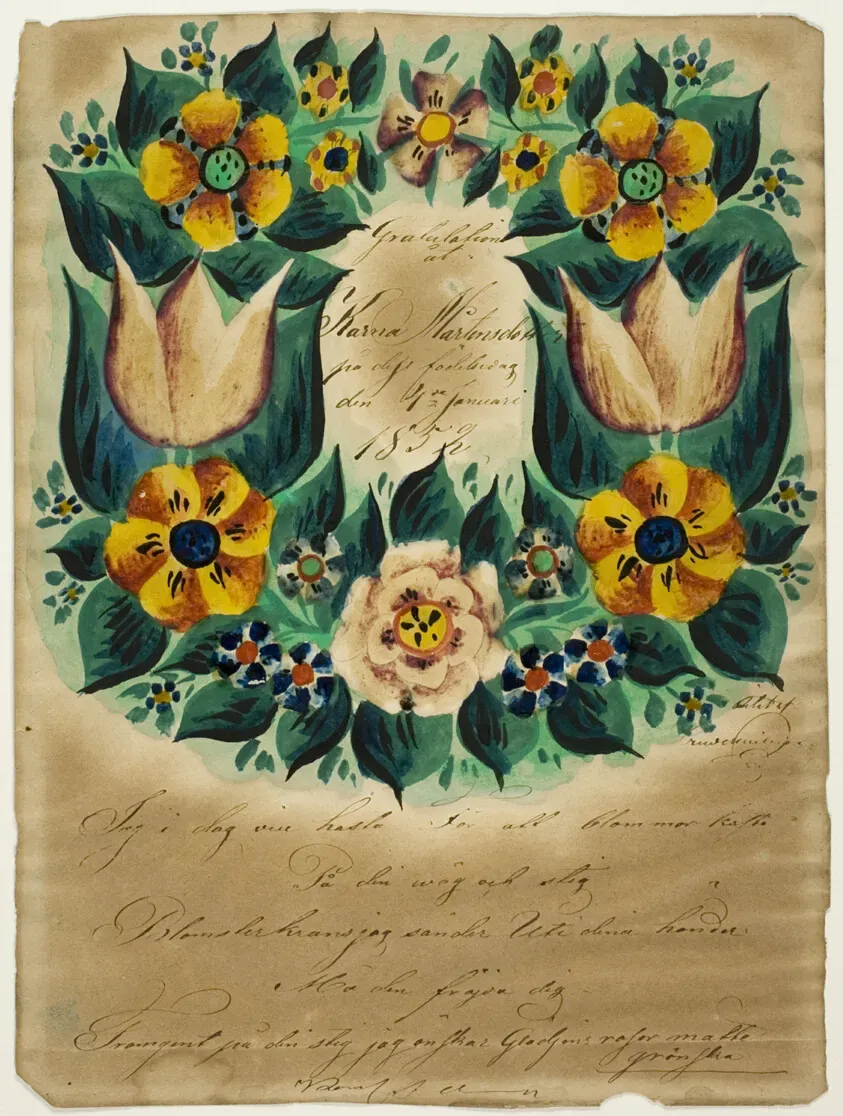 Gratulation
åt
Karna Mårtensdotter
på dess födelsedag
den 4de Januari
1852
Jag i dag vill hasta för att blommor kasta
På din wäg och stig
Blomsterkrans jag sänder Uti dina händer
Må den fröjda dig
Framgent på din stig jag önskar Glädjens rosor matte
grönska